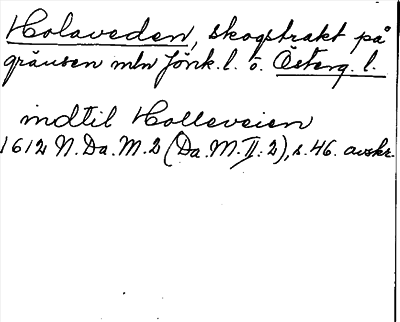 Holaveden, skogstrakt på
gränsen mln Jönk. l. o. Österg. l.
indtil Holleveien
1612 N. Da. M. 2 (Da. M. II: 2), s. 46. avskr.